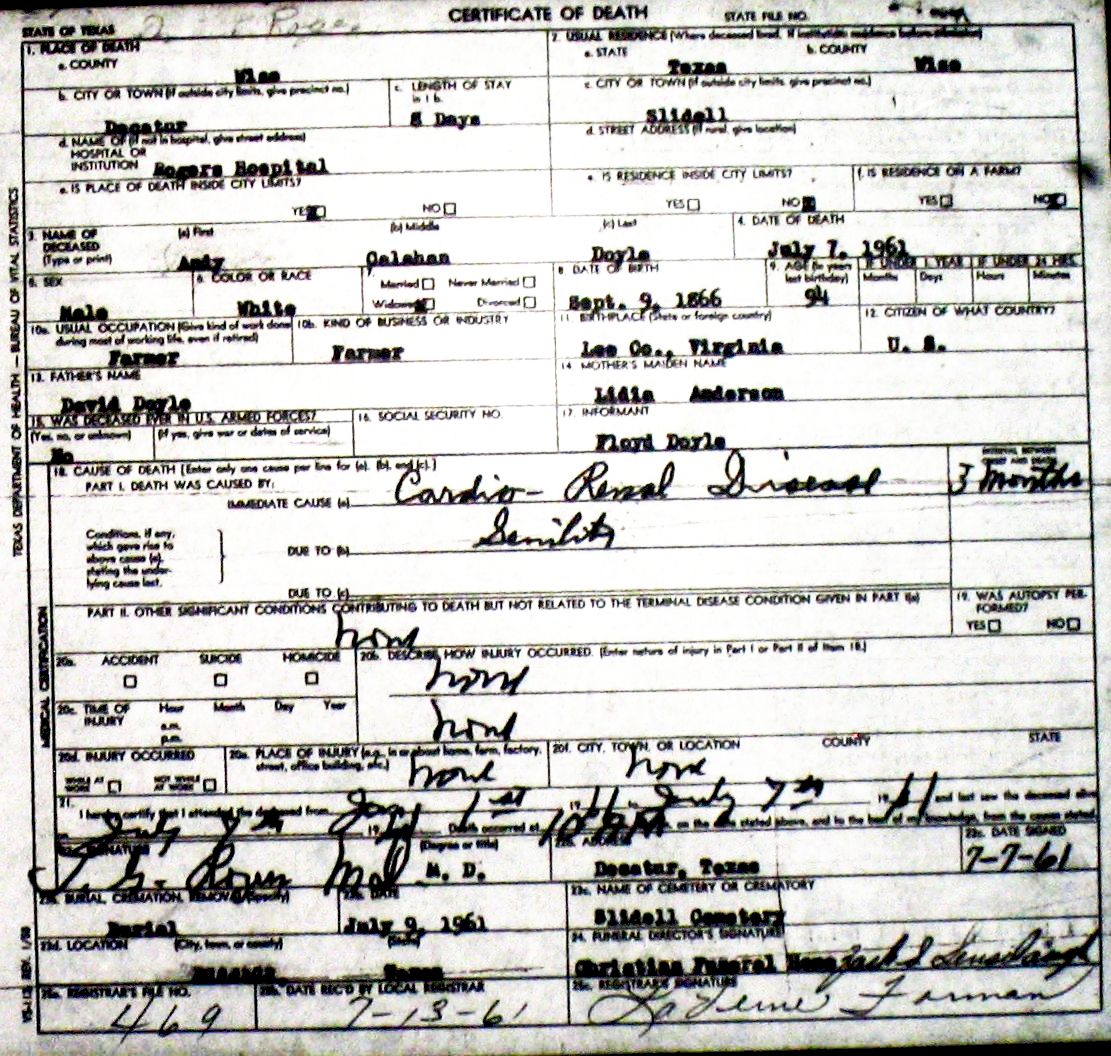 CERTIFICATE OF DEATH
STATE OF TEXAS
STATE FILE NO.
1. PLACE OF DEATH
a. COUNTY
Wise
2. USUAL RESIDENCE (Where deceased lived. If institution: residence before admission)
a. STATE
Texas
b. COUNTY
Wise
b. CITY OR TOWN (If outside city limits, give precinct no.)
Decatur
c. LENGTH OF STAY in 1 b.
8 Days
c. CITY OR TOWN (If outside city limits, give precinct no.)
Slidell
d. NAME OF (If not in hospital, give street address)
HOSPITAL OR
INSTITUTION Rogers Hospital
d. STREET ADDRESS (If rural, give location)
e. IS PLACE OF DEATH INSIDE CITY LIMITS?
YES NO
e. IS RESIDENCE INSIDE CITY LIMITS?
YES NO
f. IS RESIDENCE ON A FARM?
YES NO
3. NAME OF DECEASED (Type or print)
(a) First
Andy
(b) Middle
Calahan
(c) Last
Doyle
4. DATE OF DEATH
July 7, 1961
5. SEX
Male
6. COLOR OR RACE
White
7.
Married Never Married
Widowed Divorced
8. DATE OF BIRTH
Sept. 9, 1866
9. AGE (In years last birthday)
94
IF UNDER 1 YEAR
Months Days
IF UNDER 24 HRS.
Hours Minutes
10a. USUAL OCCUPATION (Give kind of work done during most of working life, even if retired)
Farmer
10b. KIND OF BUSINESS OR INDUSTRY
Farmer
11. BIRTHPLACE (State or foreign country)
Lee Co., Virginia
12. CITIZEN OF WHAT COUNTRY?
U. S.
13. FATHER'S NAME
David Doyle
14. MOTHER'S MAIDEN NAME
Lidia Anderson
15. WAS DECEASED EVER IN U.S. ARMED FORCES?
(Yes, no, or unknown)
No
(If yes, give war or dates of service)
16. SOCIAL SECURITY NO.
17. INFORMANT
Floyd Doyle
18. CAUSE OF DEATH [Enter only one cause per line for (a), (b), and (c).]
PART I. DEATH WAS CAUSED BY:
IMMEDIATE CAUSE (a) Cardio-Renal Disease
INTERVAL BETWEEN ONSET AND DEATH
3 months
Conditions, if any, which gave rise to above cause (a), stating the underlying cause last.
DUE TO (b) Senility
DUE TO (c)
PART II. OTHER SIGNIFICANT CONDITIONS CONTRIBUTING TO DEATH BUT NOT RELATED TO THE TERMINAL DISEASE CONDITION GIVEN IN PART I(a)
None
19. WAS AUTOPSY PERFORMED?
YES NO
20a. ACCIDENT SUICIDE HOMICIDE
20b. DESCRIBE HOW INJURY OCCURRED. (Enter nature of injury in Part I or Part II of item 18.)
None
20c. TIME OF INJURY Hour Month Day Year
a.m.
p.m.
None
20d. INJURY OCCURRED
WHILE AT WORK NOT WHILE AT WORK
20e. PLACE OF INJURY (e.g., in or about home, farm, factory, street, office building, etc.)
None
20f. CITY, TOWN, OR LOCATION COUNTY STATE
None
21.
I hereby certify that I attended the deceased from 1st 1961 to July 7th 1961 and last saw the deceased alive
on July 7th 1961 Death occurred at on the date stated above, and to the best of my knowledge, from the causes stated.
22a. SIGNATURE (Degree or title)
M. D.
22b. ADDRESS
Decatur, Texas
22c. DATE SIGNED
7-7-61
23a. BURIAL, CREMATION, REMOVAL (Specify)
Burial
23b. DATE
July 9, 1961
23c. NAME OF CEMETERY OR CREMATORY
Slidell Cemetery
23d. LOCATION (City, town, or county) (State)
24. FUNERAL DIRECTOR'S SIGNATURE
Christian Funeral Home
25a. REGISTRAR'S FILE NO.
469
25b. DATE REC'D BY LOCAL REGISTRAR
7-13-61
25c. REGISTRAR'S SIGNATURE
LaVerne Forman
TEXAS DEPARTMENT OF HEALTH — BUREAU OF VITAL STATISTICS
MEDICAL CERTIFICATION